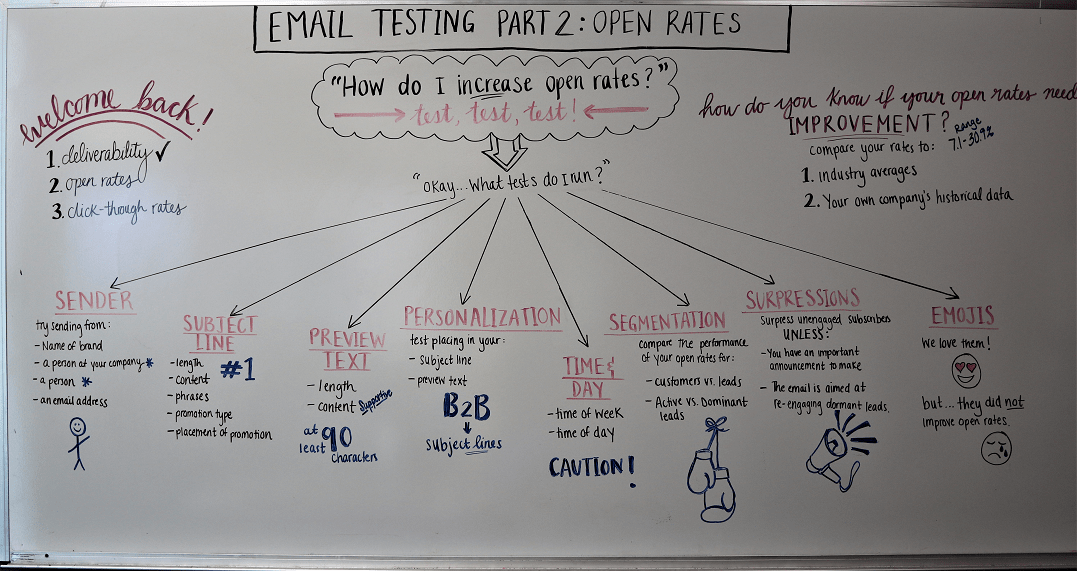 EMAIL TESTING PART 2: OPEN RATES
"How do I increase open rates?"
test, test, test!
"Okay...What tests do I run?"
welcome back!
1. deliverability ✓
2. open rates
3. click-through rates
how do you know if your open rates need
IMPROVEMENT?
Range
7.1-30.9%
compare your rates to:
1. Industry averages
2. Your own company's historical data
SENDER
try sending from:
- Name of brand
- a person at your company *
- a person *
- an email address
SUBJECT
LINE
- length
- content
- phrases
- promotion type
- placement of promotion
#1
PREVIEW
TEXT
- length
- content supportive
at least 90 characters
PERSONALIZATION
test placing in your:
- Subject line
- preview text
B2B
subject lines
TIME &
DAY
- time of week
- time of day
CAUTION!
SEGMENTATION
compare the performance
of your open rates for:
- customers vs. leads
- Active vs. Dominant
leads
SURPRESSIONS
Surpress unengaged subscribers
UNLESS:
- You have an important
announcement to make
- The email is aimed at
re-engaging dormant leads.
EMOJIS
We love them!
but...they did not
improve open rates.